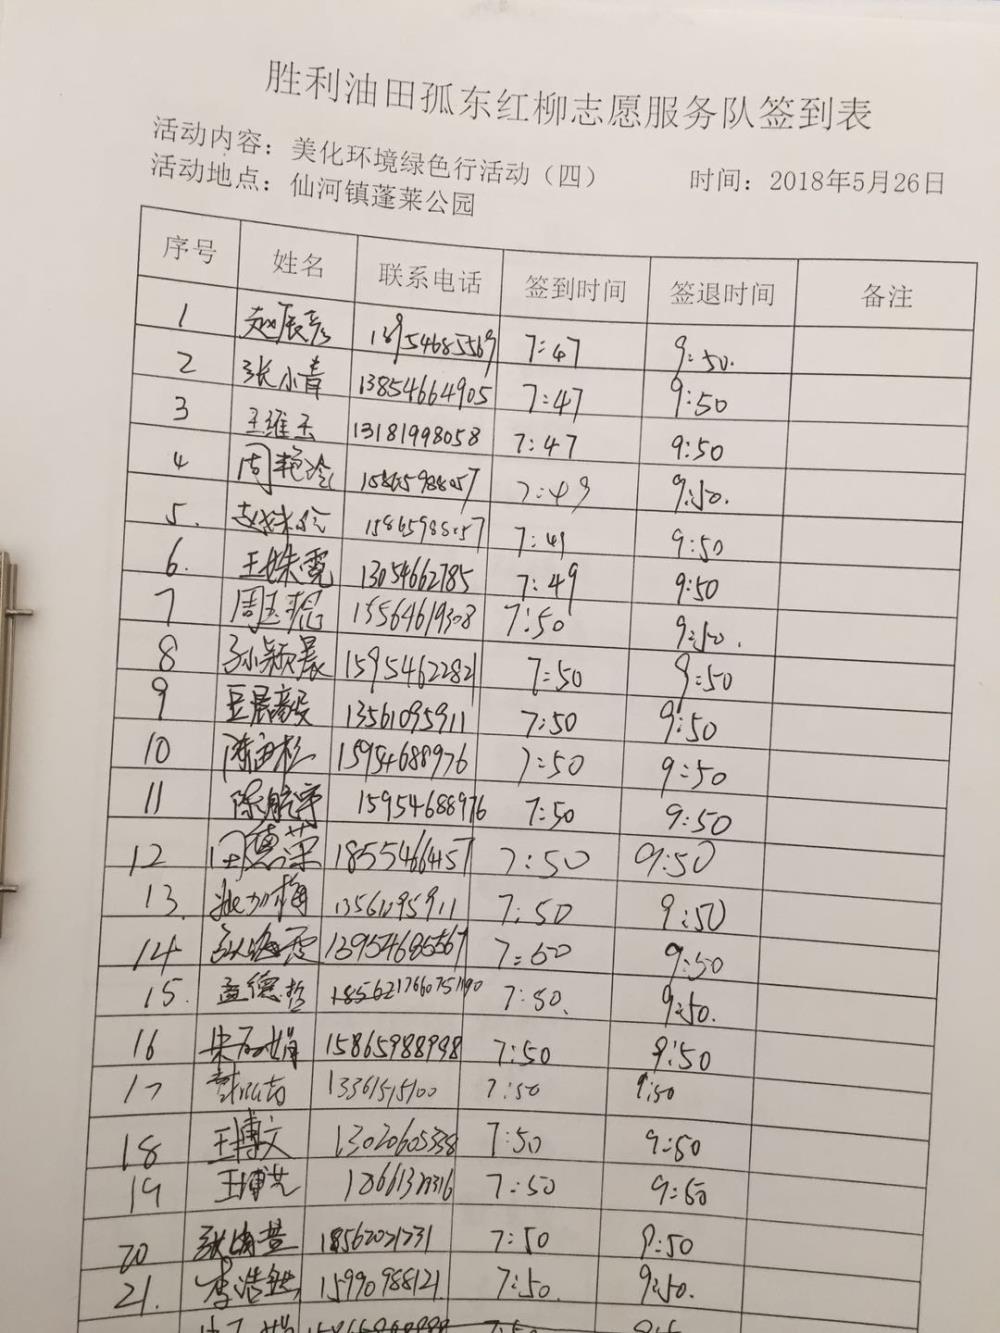 胜利油田孤东红柳志愿服务队签到表
活动内容：美化环境绿色行活动（四） 时间：2018年5月26日
活动地点：仙河镇蓬莱公园
序号 姓名 联系电话 签到时间 签退时间 备注
1 赵辰彦 13954685569 7:47 9:50.
2 张小青 13854664905 7:47 9:50
3 王维玉 13181998058 7:47 9:50
4 周艳冷 15865988057 7:49 9:50.
5. 7:49 9:50
6. 王姝霓 13054662785 7:49 9:50
7 周玉琨 15564619308 7:50 9:50.
8 孙颖晨 15954622821 7:50 9:50
9 豆晨毅 13561095911 7:50 9:50
10 15954688976 7:50 9:50
11 陈航宇 15954688976 7:50 9:50
12 田惠荣 18554664157 7:50 9:50
13. 姚加梅 13561295911 7:50 9:50
14 13954685567 7:50 9:50
15. 孟德哲 7:50. 9:50.
16 15865988998 7:50 9:50
17 13361515100 7:50 9:50
18 王博文 13020605338 7:50 9:50
19 王博艺 7:50 9:50
20 18562021231 7:50 9:50
21. 李浩 15990988121 7:50. 9:50.